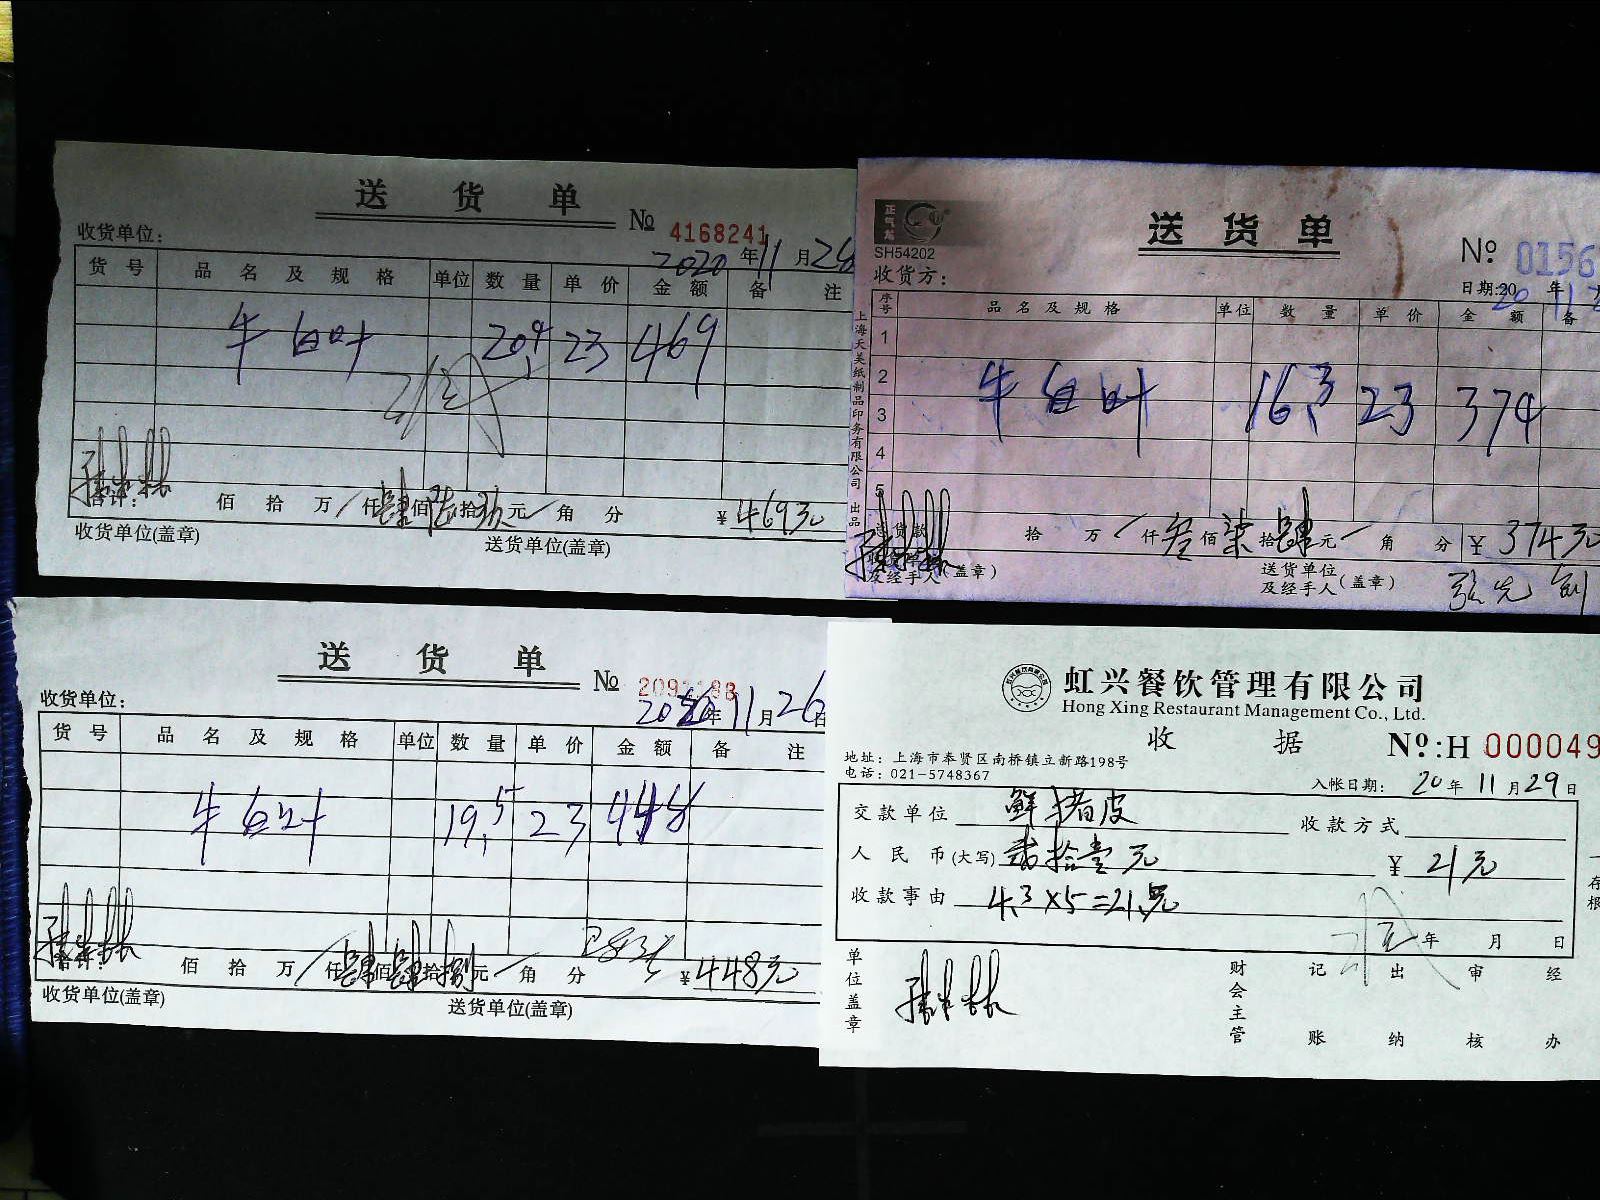 送货单
№ 4168241
收货单位：
2020年11月28
货号 品名及规格 单位 数量 单价 金额 备注
牛白叶 20.4 23 469
合计： 佰拾万/仟肆佰陆拾玖元/角分 ¥469元
收货单位(盖章) 送货单位(盖章)
正气龙
SH54202
送货单
Nº 0156
收货方：
日期：2020年11
序号 品名及规格 单位 数量 单价 金额 备
1
2
牛白叶 16.3 23 374
3
4
5
拾万/仟叁佰柒拾肆元/角分 ¥374元
收货单位及经手人(盖章) 送货单位及经手人(盖章)
上海天美纸制品印务有限公司 出品
送货单
№
收货单位：
2020年11月26日
货号 品名及规格 单位 数量 单价 金额 备注
牛白叶 19.5 23 448
合计： 佰拾万/仟肆佰肆拾捌元/角分 ¥448元
收货单位(盖章) 送货单位(盖章)
虹兴餐饮管理有限公司
Hong Xing Restaurant Management Co., Ltd.
收据
Nº:H 000049
地址：上海市奉贤区南桥镇立新路198号
电话：021-5748367
入帐日期：20年11月29日
交款单位 鲜猪皮 收款方式
人民币(大写) 贰拾壹元 ¥21元
收款事由 4.3×5=21.元
年 月 日
存根
单位盖章 财会主管 记账 出纳 审核 经办